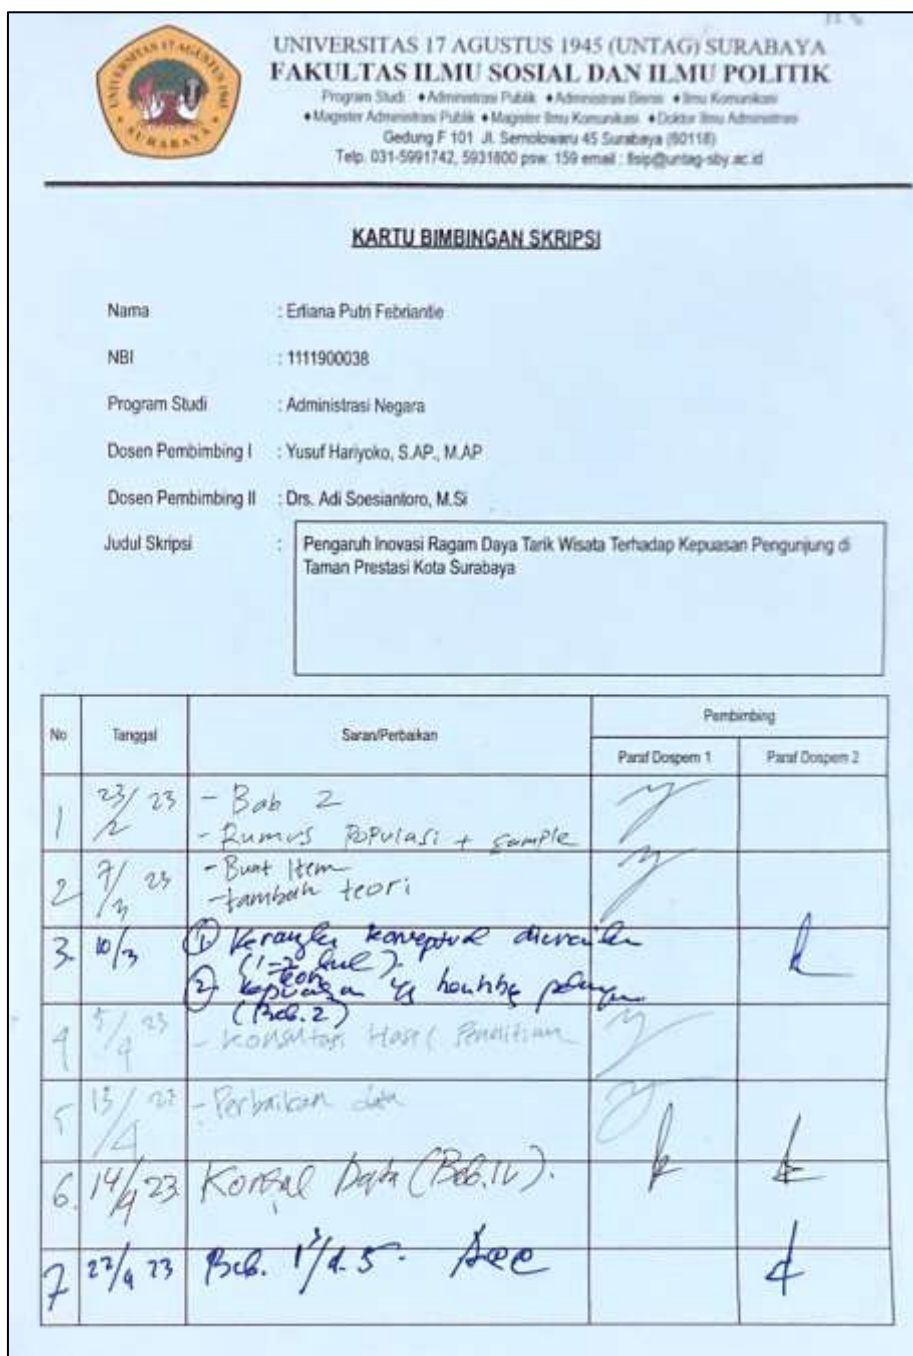 UNIVERSITAS 17 AGUSTUS 1945 (UNTAG) SURABAYA
FAKULTAS ILMU SOSIAL DAN ILMU POLITIK
Program Studi : ♦Administrasi Publik ♦Administrasi Bisnis ♦Ilmu Komunikasi
♦Magister Administrasi Publik ♦Magister Ilmu Komunikasi ♦Doktor Ilmu Administrasi
Gedung F 101 Jl. Semolowaru 45 Surabaya (60118)
Telp. 031-5991742, 5931800 psw. 159 email : fisip@untag-sby.ac.id
KARTU BIMBINGAN SKRIPSI
Nama : Erliana Putri Febriantie
NBI : 1111900038
Program Studi : Administrasi Negara
Dosen Pembimbing I : Yusuf Hariyoko, S.AP., M.AP
Dosen Pembimbing II : Drs. Adi Soesiantoro, M.Si
Judul Skripsi : Pengaruh Inovasi Ragam Daya Tarik Wisata Terhadap Kepuasan Pengunjung di
Taman Prestasi Kota Surabaya
No Tanggal Saran/Perbaikan Pembimbing
Paraf Dospem 1 Paraf Dospem 2
1 23/2 23 - Bab 2
- Rumus Populasi + sample
2 7/3 23 - Buat Item
- tambah teori
3. 10/3 ① Kerangka konseptual
(Bab.2)
4 5/4 23 - Konsultasi Hasil Penelitian
5 13/4 23 - Perbaikan data
6. 14/4 23 Data (Bab.IV).
7 27/4 23 Bab. 1 s/d. 5. Acc